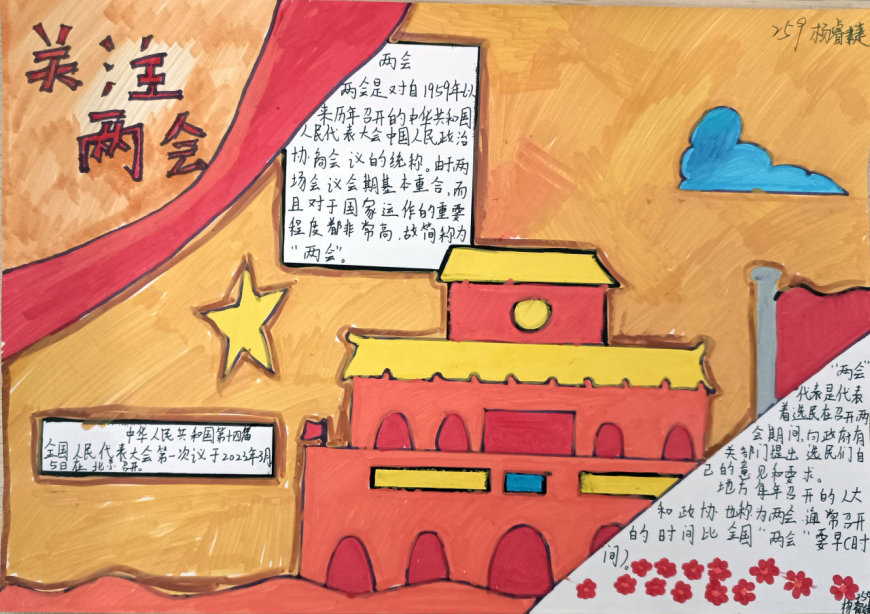 关注
两会
259 杨睿
两会
两会是对自1959年以
来历年召开的中华共和国
人民代表大会中国人民政治
协商会议的统称。由于两
场会议会期基本重合,而
且对于国家运作的重要
程度都非常高,故简称为
“两会”。
中华人民共和国第十四届
全国人民代表大会第一次议于2023年3月
5日在北京召开。
“两会”
代表是代表
着选民在召开两
会期间,向政府有
关部门提出选民们自
己的意见和要求。
地方每年召开的人大
和政协也称为两会,通常召开
的时间比全国“两会”要早(时
间)。
259